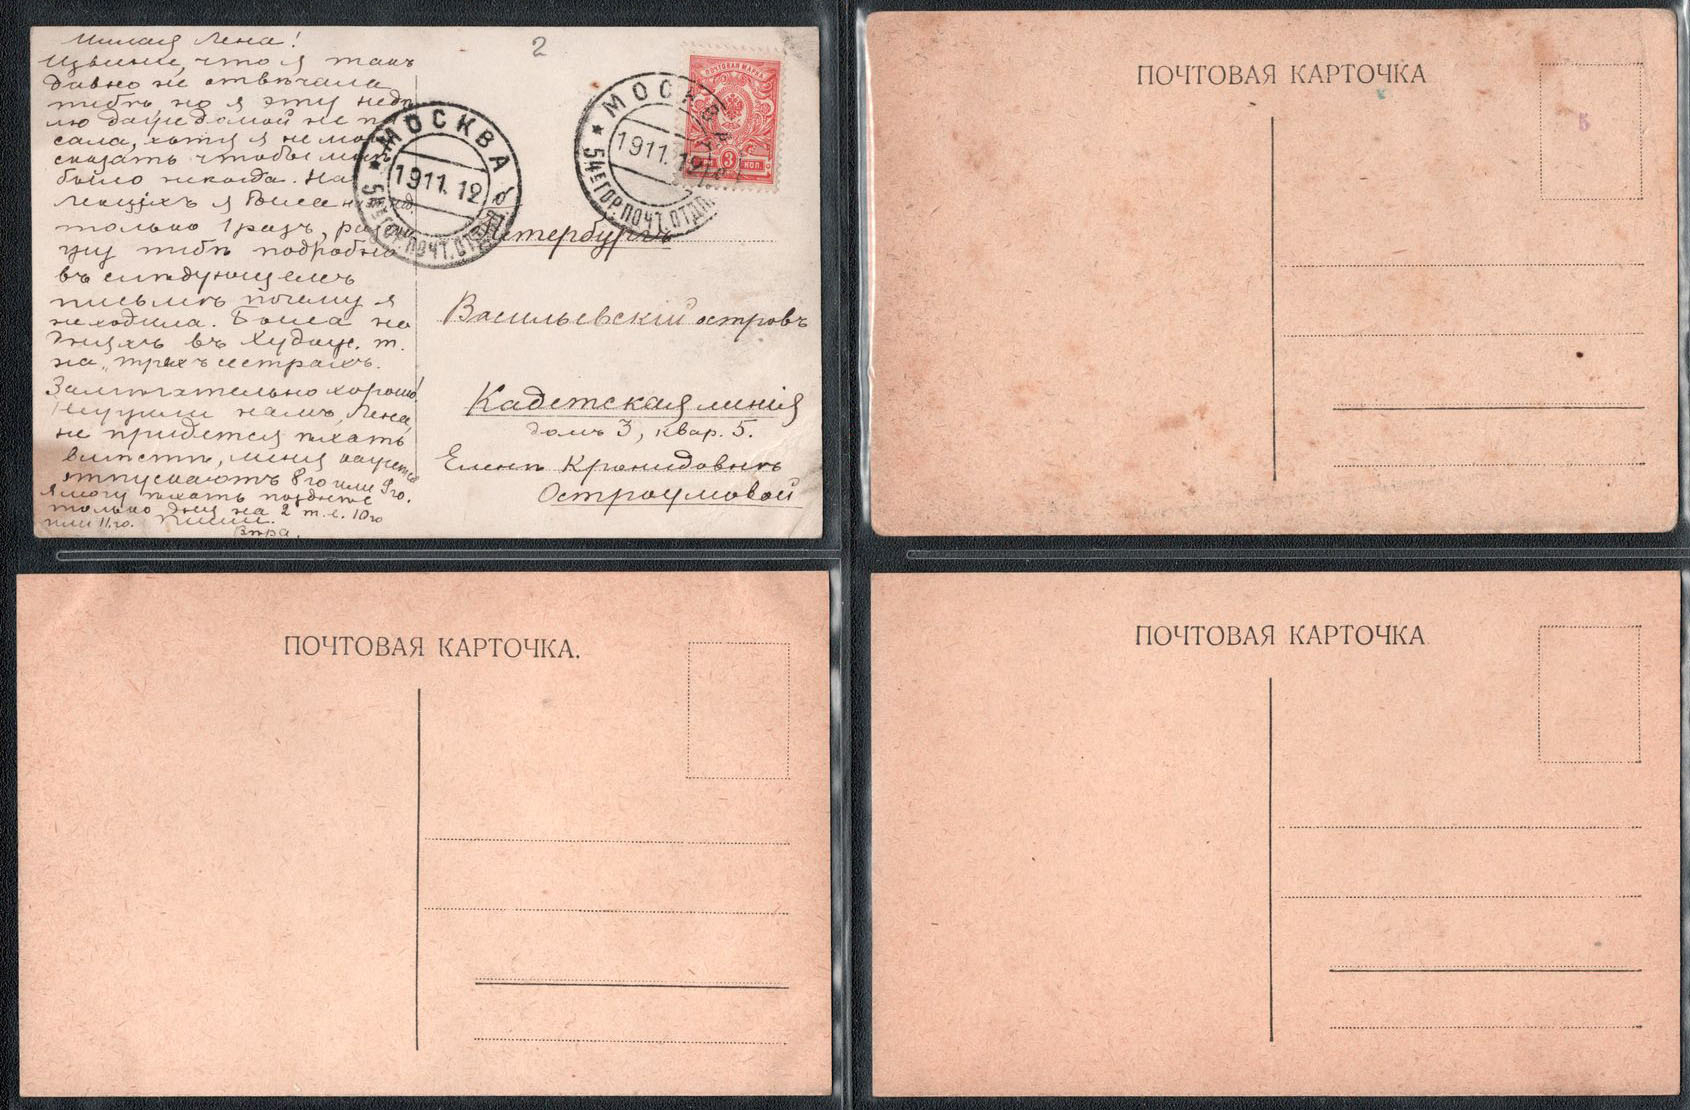 2
Милая Лена!
Извини, что я такъ
давно не отвѣчала
тебѣ, но я эту недѣ
лю даже домой не пи
сала, хотя я не мо
сказать чтобы мнѣ
было некогда. На
лекціяхъ я была
только 1 разъ,
шу тебѣ подробно
въ слѣдующемъ
письмѣ почему я
не ходила. Была на
дняхъ въ Худож. т.
на „трехъ сестрахъ.
Замѣчательно хорошо!
Неужели намъ, Лена,
не придется ѣхать
вмѣстѣ, меня
отпускаютъ 8го или 9го.
я могу ѣхать позднѣе
только дня на 2 т.е. 10го
или 11.го. Пиши.
Вѣра.
ПОЧТОВАЯ МАРКА
3 КОП.
МОСКВА
1911.12
54Е ГОР.ПОЧТ.ОТД.
МОСКВА
1911.12
54Е ГОР.ПОЧТ.ОТД.
Петербургъ
Васильевскій островъ
Кадетская линія
домъ 3, квар. 5.
Еленѣ Кронидовнѣ
Остроумовой
ПОЧТОВАЯ КАРТОЧКА
5
ПОЧТОВАЯ КАРТОЧКА.
ПОЧТОВАЯ КАРТОЧКА